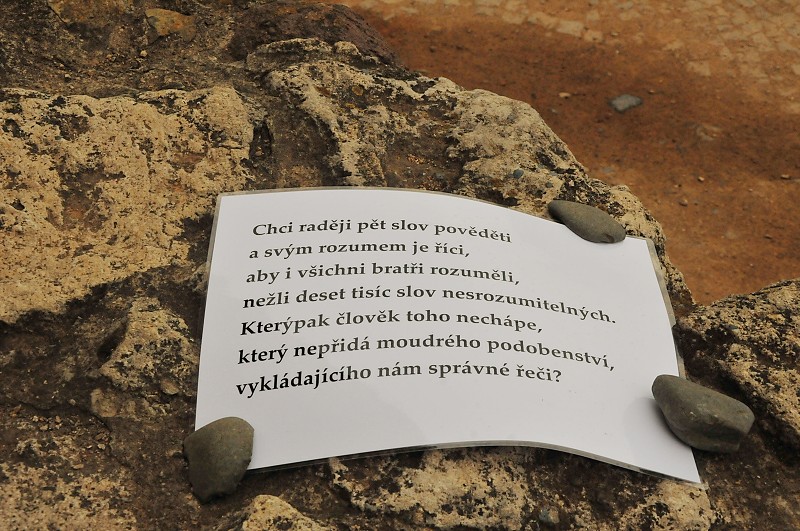 Chci raději pět slov pověděti
a svým rozumem je říci,
aby i všichni bratři rozuměli,
nežli deset tisíc slov nesrozumitelných.
Kterýpak člověk toho nechápe,
který nepřidá moudrého podobenství,
vykládajícího nám správné řeči?